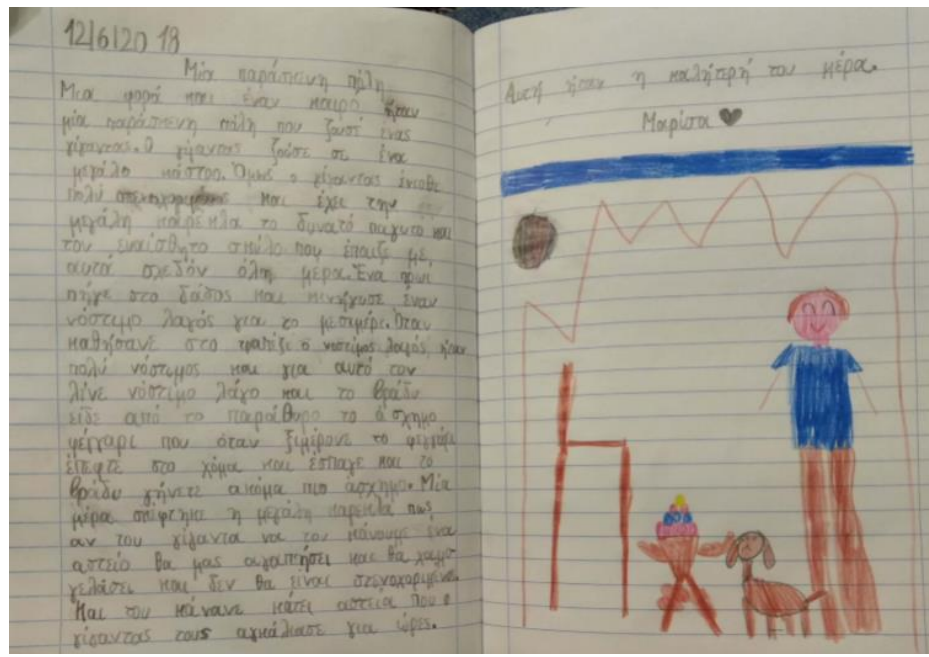 12/6/2018
Μία παράξενη πόλη
Μια φορά και έναν καιρο ήταν
μία παράξενη πόλη που ζουσέ ένας
γίγαντας. Ο γίγαντας ζούσε σε ένα
μεγάλο κάστρο. Όμως ο γίγαντας ένιοθε
πολύ στεναχοριμένος και έχει την
μεγάλη καρέκλα το δυνατό παγωτό και
τον εναίσθητο σκύλο που έπαιζε με,
αυτά σχεδόν όλη μέρα. Ένα πρωι
πήγε στο δάσος και κινήγυσε έναν
νόστιμο λαγός για το μεσιμέρι. Όταν
καθήσανε στο τραπέζι ο νοστίμος λαγός, ήταν
πολύ νόστιμος και για αυτό τον
λένε νόστιμο λάγο και το βράδυ
είδε από το παράθυρο το άσχημο
φέγγαρι που όταν ξιμέρονε το φεγγάρι
έπεφτε στο χόμα και έσπαγε και το
βράδυ γήνετε ακόμα πιο άσχημο. Μία
μέρα σκέφτηκε η μεγάλη καρέκλα πως
αν του γίγαντα να του κάνουμε ένα
αστείο θα μας αγαπήσει και θα χαμο
γελάσει και δεν θα είναι στενοχοριμένος.
Και του κάνανε κάτει αστεία που ο
γίγαντας τους αγκάλιασε για ώρες.
Αυτή ήταν η καλήτερή του μέρα.
Μαρίσα